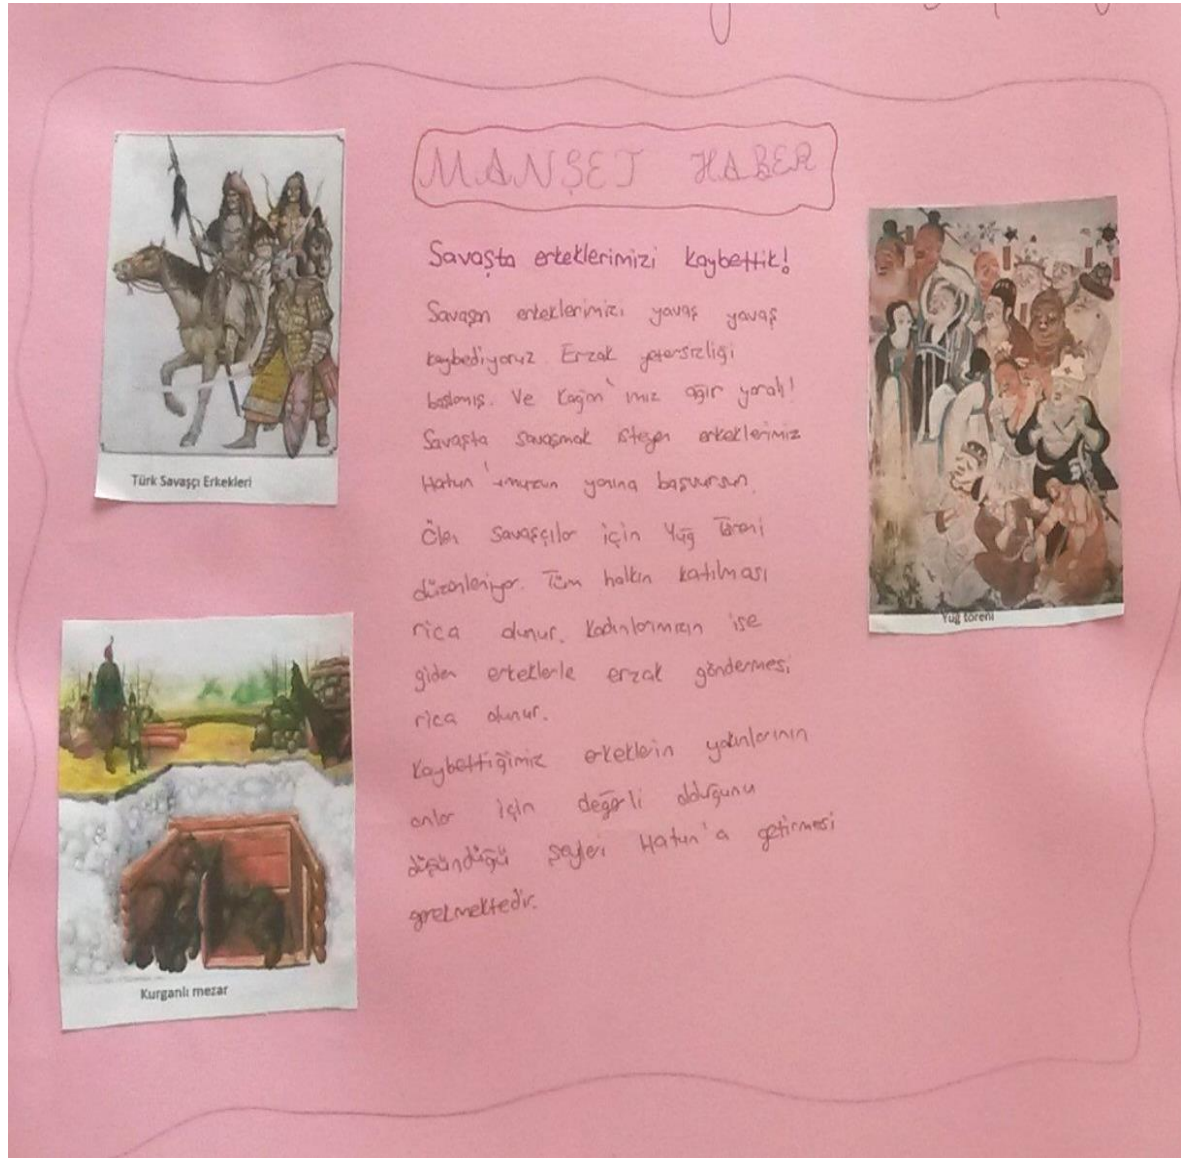 MANŞET HABER
Savaşta erkeklerimizi kaybettik!
Savaşın erkeklerimizi yavaş yavaş
kaybediyoruz. Erzak yetersizliği
başlamış. Ve Kağan'ımız ağır yaralı!
Savaşta savaşmak isteyen erkeklerimiz
Hatun'umuzun yanına başvursun.
Ölen savaşçılar için Yuğ töreni
düzenleniyor. Tüm halkın katılması
rica olunur. Kadınlarımızın ise
giden erkeklerle erzak göndermesi
rica olunur.
Kaybettiğimiz erkeklerin yakınlarının
onlar için değerli olduğunu
düşündüğü şeyleri Hatun'a getirmesi
gerekmektedir.
Türk Savaşçı Erkekleri
Kurganlı mezar
Yuğ töreni